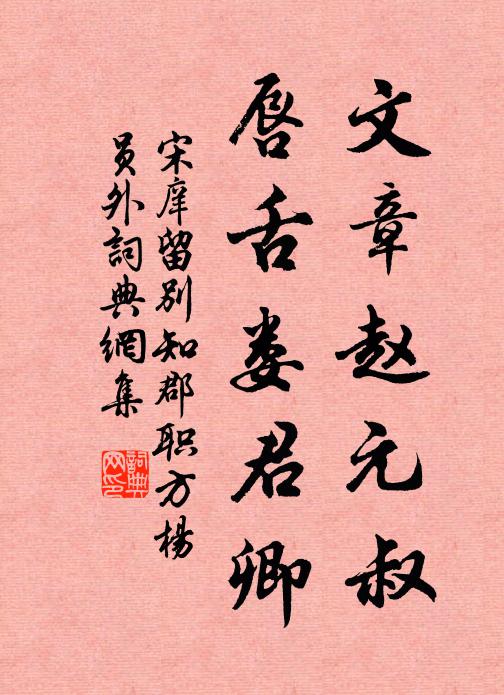 文章赵元叔
唇舌娄君卿
宋庠留别知郡职方杨
员外词典網集
詞典網印